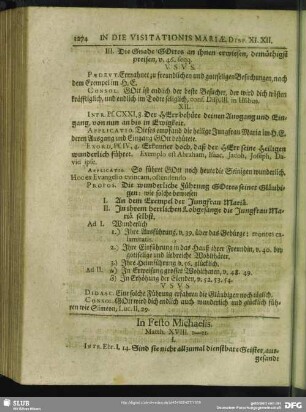 1274 IN DIE VISITATIONIS MARIÆ, Disp. XI. XII.
III. Die Gnade GOttes an ihnen erwiesen, demüthigst
preisen, v. 46. seqq.
V S V S.
Pædevt. Ermahnet zu freundlichen und gottseligen Besuchungen, nach
dem Exempel im H. E.
Consol. GOtt ist endlich der beste Besucher, der wird dich trösten
kräfftiglich, und endlich im Tode seliglich,
XII.
Intr. Ps. CXXI, 8. Der HErr behüte deinen Ausgang und Eingang,
von nun an bis in Ewigkeit.
Applicatio. Dieses empfand die heilige Jungfrau Maria im H. E.
deren Ausgang und Eingang GOtt behütete.
Exord. Ps. IV, 4. Erkennet doch, daß der HErr seine Heiligen
wunderlich führet. Exempla ost Abraham, Isaac, Jacob, Joseph, David
Applicatio. So führet GOtt noch heute die Seinigen wunderlich,
Hoc ex Evangelio evincam, ostendendo
Propos. Die wunderliche Führung GOttes seiner Gläubigen:
wie solche bewiesen
I. An dem Exempel der Jungfrau Mariä.
II. In ihrem herrlichen Lobgesange die Jungfrau Maria
selbst.
Ad I. Wunderlich
1.) Ihre Ausführung, v. 39. über das Gebirge: montes calamitatis
2.) Ihre Einführung in das Hauß ihrer Freundin, v. 40. bey
gottselige und liebreiche
3.) Ihre Heimführung v. 56. glücklich.
Ad II. In Erweisung grosser Wohlthaten, v. 48. 49.
In Erhöhung der Elenden, v. 52. 53. 54.
V S V S
Didasc. Eine solche Führung erfahren die Gläubigen
Consol. GOtt wird dich endlich auch wunderlich und glücklich führen
wie Simeon, Luc. II, 29.
In Festo Michaelis.
Matth. XVIII. 1-11.
I.
Intr. Ebr. I, 14. Sind sie nicht allzumal dienstbare Geister, ausgesandt
SLUB
Wir führen Wissen.
DFG